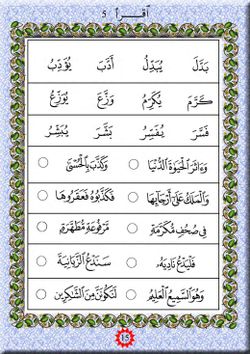 اقرأ 5
بَدَّلَ يُبَدِّلُ أَدَّبَ يُؤَدِّبُ
كَرَّمَ يُكَرِّمُ وَزَّعَ يُوَزِّعُ
فَسَّرَ يُفَسِّرُ بَشَّرَ يُبَشِّرُ
وَءَاثَرَ الْحَيَوٰةَ الدُّنْيَا ○ وَكَذَّبَ بِالْحُسْنَىٰ ○
وَالْمَلَكُ عَلَىٰٓ أَرْجَآئِهَا ○ فَكَذَّبُوهُ فَعَقَرُوهَا ○
فِى صُحُفٍ مُّكَرَّمَةٍ ○ مَّرْفُوعَةٍ مُّطَهَّرَةٍ ○
فَلْيَدْعُ نَادِيَهُۥ ○ سَنَدْعُ الزَّبَانِيَةَ ○
وَهُوَ السَّمِيعُ الْعَلِيمُ ○ لَنَكُونَنَّ مِنَ الشَّٰكِرِينَ ○
15